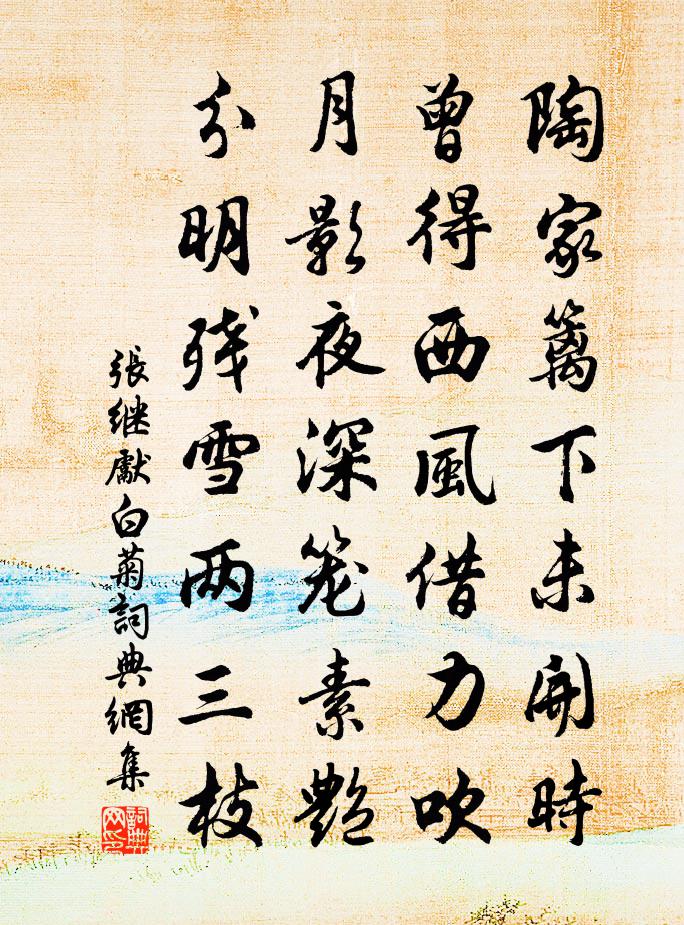 陶家篱下未開時
曾得西風借力吹
月影夜深笼素艶
分明残雪两三枝
張继獻白菊詞典網集
詞典网印